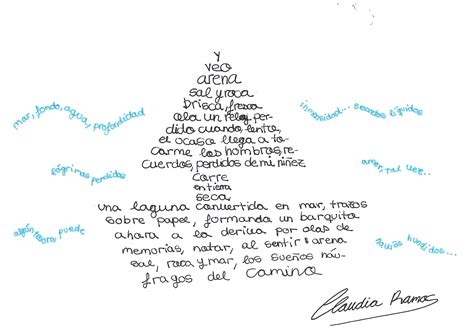 y
veo
arena
sal y roca
brisca, fresca
ola un reloj per-
dido cuando, lento,
el ocaso llega a to-
carme los hombros, re-
cuerdos, perdidos de mi niñez
corre
en tierra
seca,
una laguna convertida en mar, trazos
sobre papel, formando un barquito
ahora a la deriva por olas de
memorias, natar, al sentir arena
sal, roca y mar, los sueños náu-
fragos del camino
mar, fondo, agua, profundidad
lágrimas perdidas
algún tesoro puede
inmensidad... secretos líquidos
amor, tal vez..
navíos hundidos...
Claudia Ramos